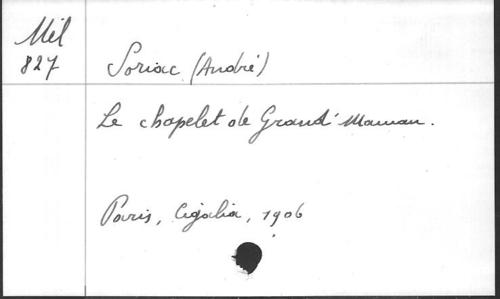 Mél
827
Soriac (André)
Le chapelet de Grand' Maman.
Paris, Cigalia, 1906